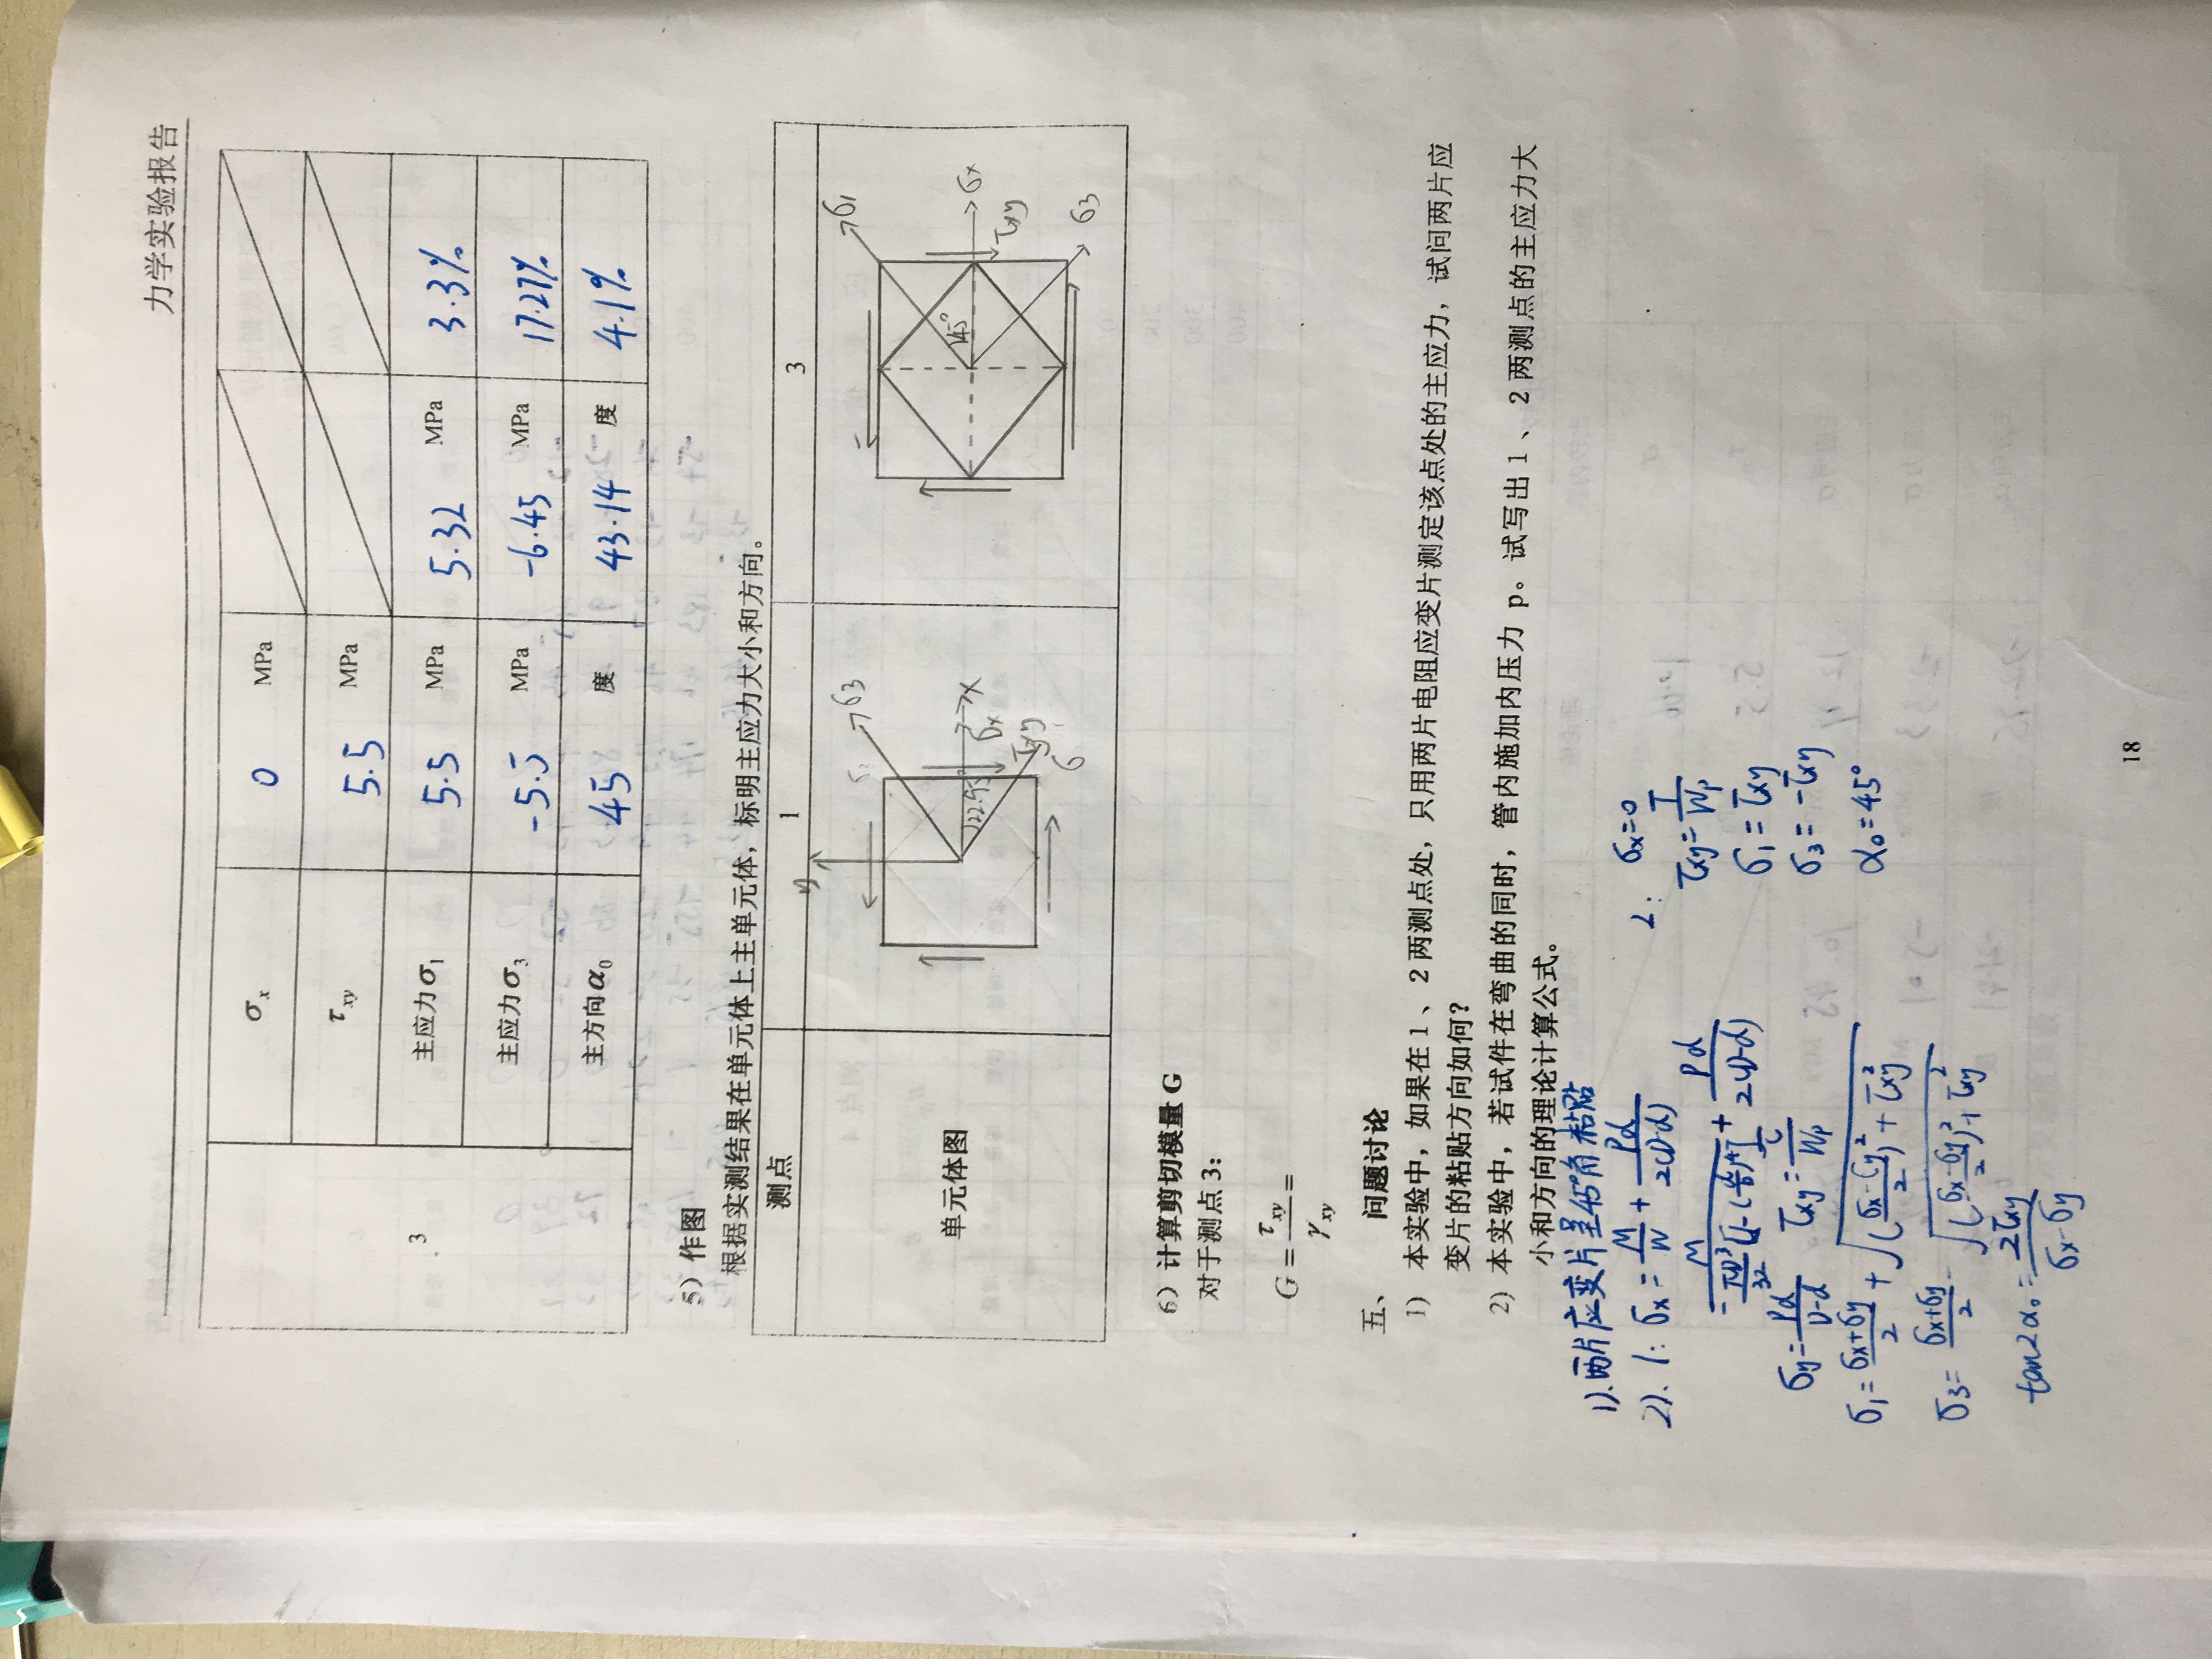 力学实验报告
3
σx 0 MPa
τxy 5.5 MPa
主应力σ1 5.5 MPa 5.32 MPa 3.3%
主应力σ3 -5.5 MPa -6.45 MPa 17.27%
主方向α0 45 度 43.14 度 4.1%
5）作图
根据实测结果在单元体上主单元体，标明主应力大小和方向。
测点 1 3
单元体图
y σ3 x σx τxy σ
σ1 45° σx τxy σ3
6）计算剪切模量 G
对于测点 3：
G = τxy / γxy =
五、 问题讨论
1) 本实验中，如果在 1 、 2 两测点处，只用两片电阻应变片测定该点处的主应力，试问两片应
变片的粘贴方向如何？
2) 本实验中，若试件在弯曲的同时，管内施加内压力 p。试写出 1 、 2 两测点的主应力大
小和方向的理论计算公式。
1).两片应变片呈45°角粘贴
2). 1: σx = M/W + Pd/2(D-d)
= M/(πD³/32 [1-(d/D)⁴]) + Pd/2(D-d)
σy = Pd/D-d τxy = T/Wp
σ1 = σx+σy/2 + √(σx-σy/2)² + τxy²
σ3 = σx+σy/2 - √(σx-σy/2)² + τxy²
tan2α0 = 2τxy/σx-σy
2: σx=0
τxy = T/Wp
σ1 = τxy
σ3 = -τxy
α0 = 45°
18